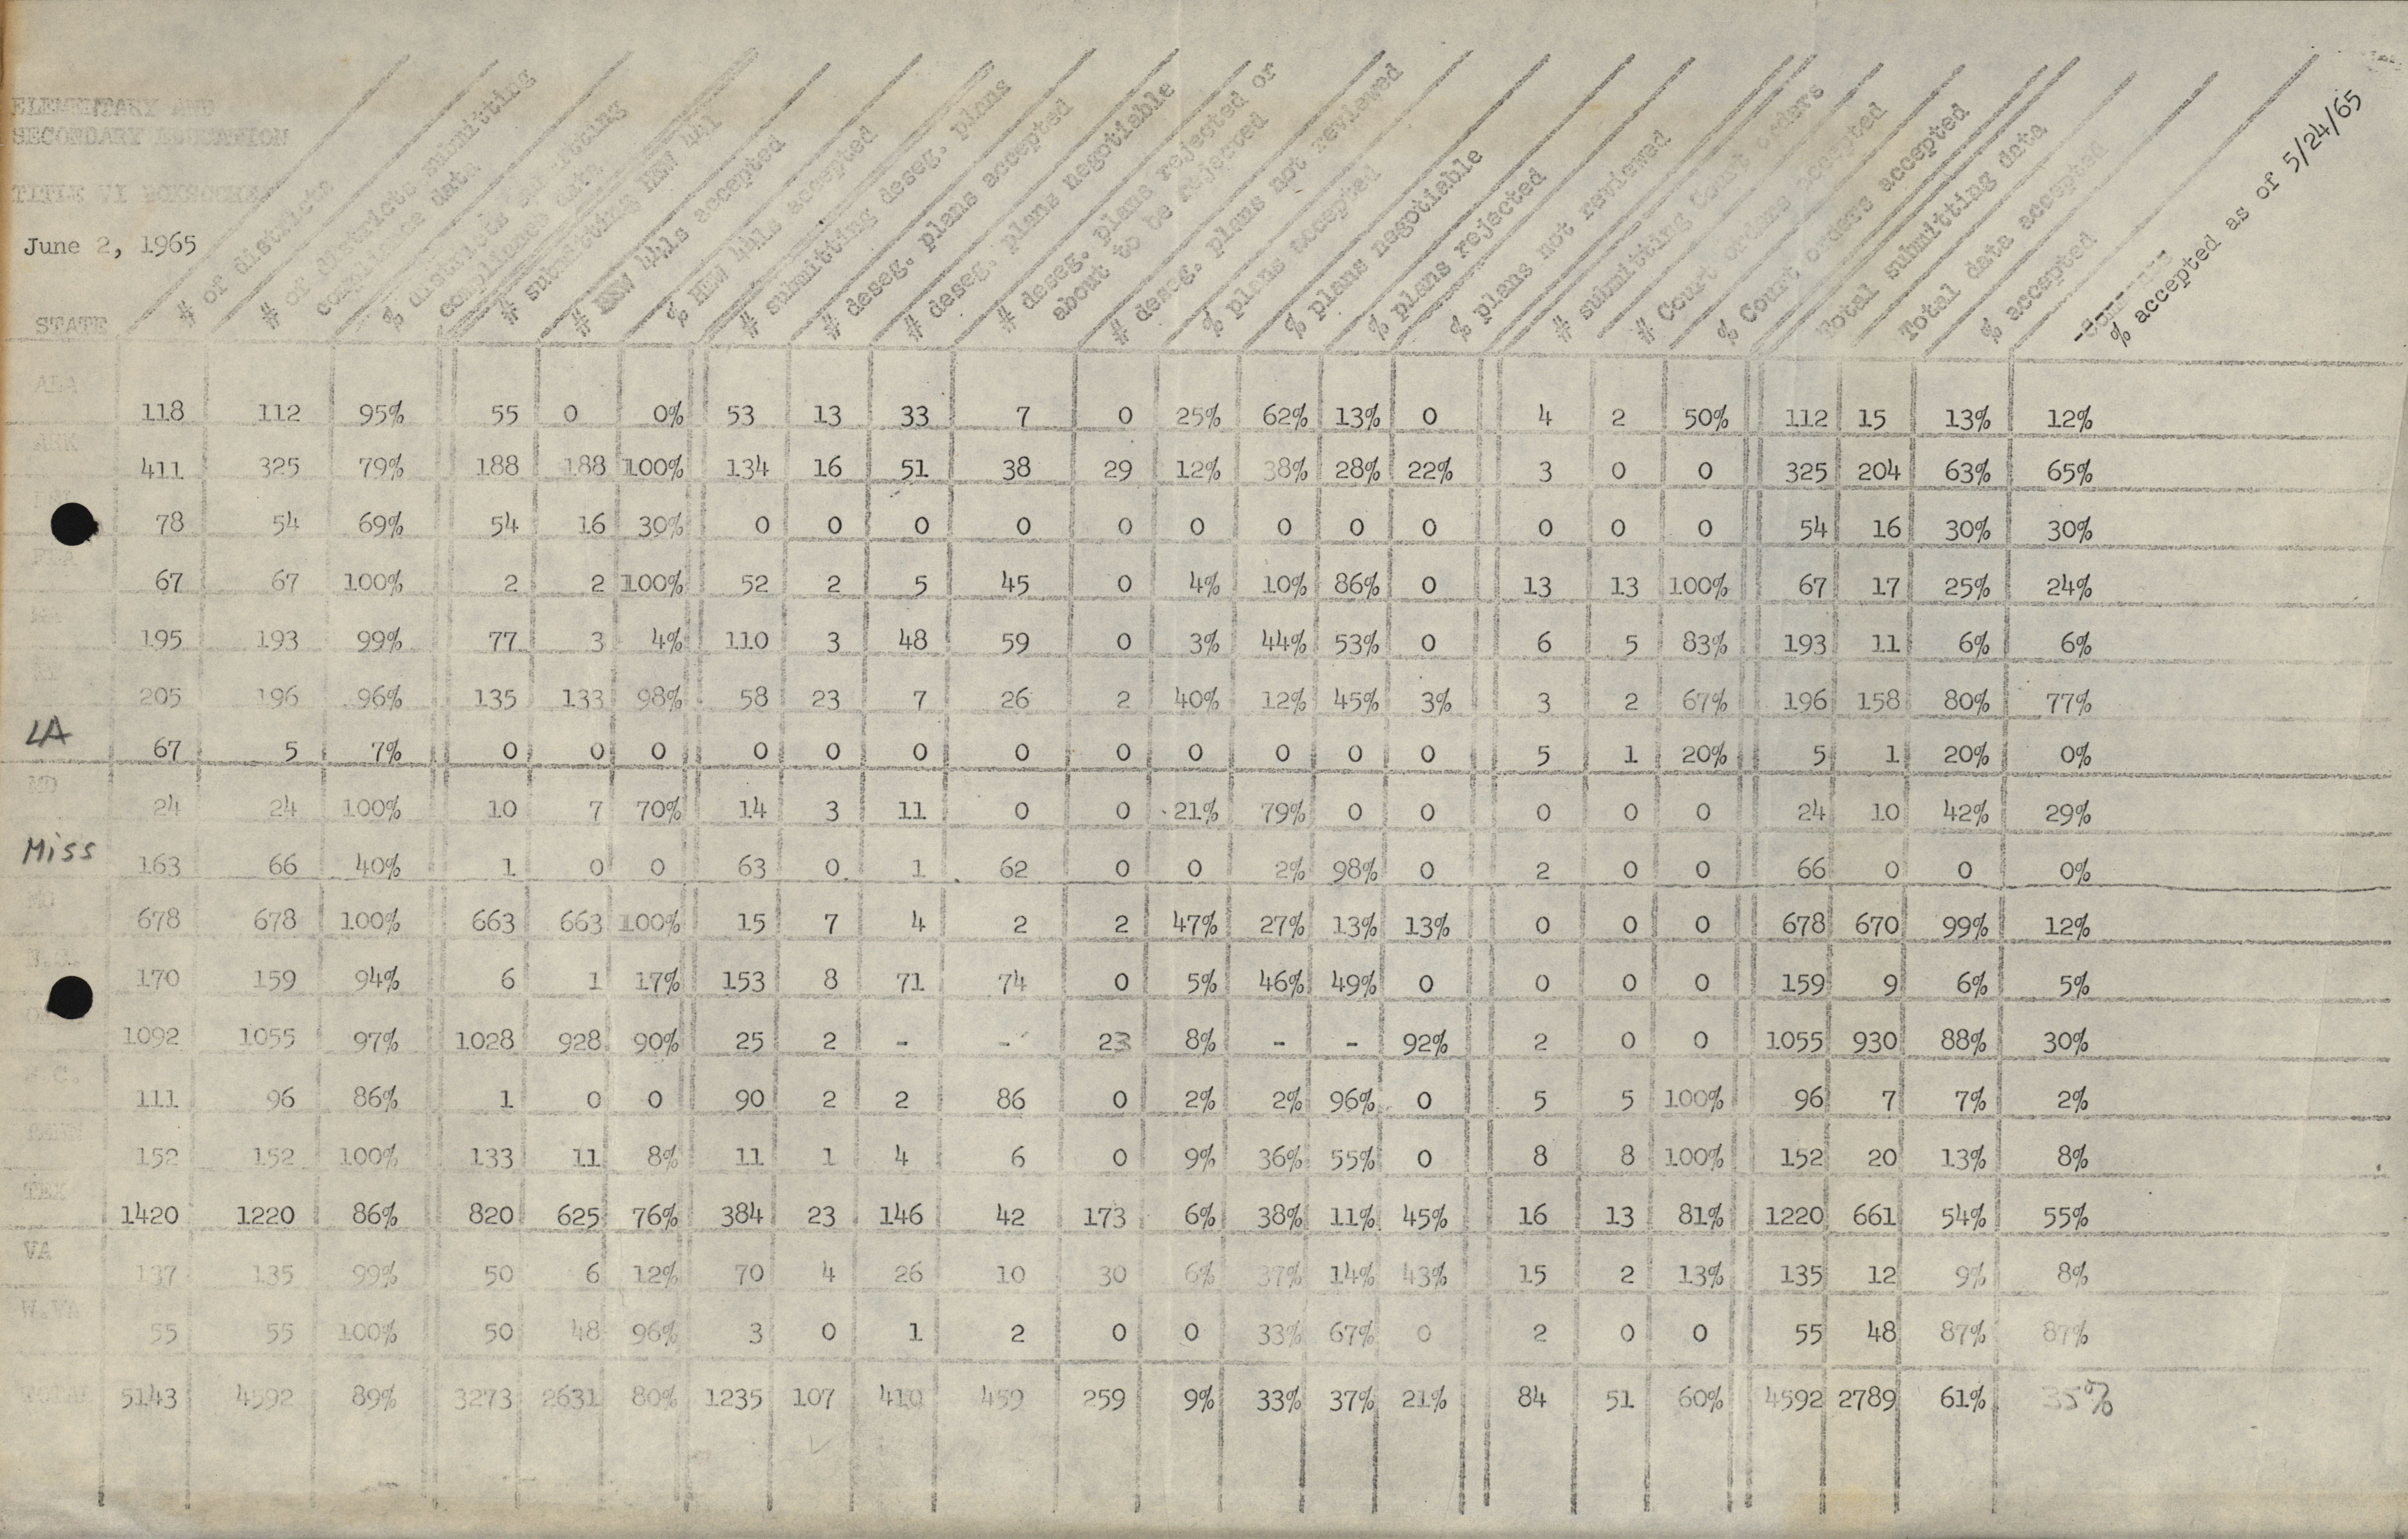 ELEMENTARY AND
SECONDARY EDUCATION
TITLE VI
June 2, 1965
STATE
# of districts
# of districts submitting
compliance data
% districts submitting
compliance data
# submitting HEW 441
# HEW 441s accepted
% HEW 441s accepted
# submitting deseg. plans
# deseg. plans accepted
# deseg. plans negotiable
# deseg. plans rejected or
about to be rejected
# deseg. plans not reviewed
% plans accepted
% plans negotiable
% plans rejected
% plans not reviewed
# submitting Court orders
# Court orders accepted
% Court orders accepted
Total submitting data
Total data accepted
% accepted
% accepted as of 5/24/65
ALA
118 112 95% 55 0 0% 53 13 33 7 0 25% 62% 13% 0 4 2 50% 112 15 13% 12%
ARK
411 325 79% 188 188 100% 134 16 51 38 29 12% 38% 28% 22% 3 0 0 325 204 63% 65%
78 54 69% 54 16 30% 0 0 0 0 0 0 0 0 0 0 0 0 54 16 30% 30%
FLA
67 67 100% 2 2 100% 52 2 5 45 0 4% 10% 86% 0 13 13 100% 67 17 25% 24%
195 193 99% 77 3 4% 110 3 48 59 0 3% 44% 53% 0 6 5 83% 193 11 6% 6%
205 196 96% 135 133 98% 58 23 7 26 2 40% 12% 45% 3% 3 2 67% 196 158 80% 77%
LA
67 5 7% 0 0 0 0 0 0 0 0 0 0 0 0 5 1 20% 5 1 20% 0%
MD
24 24 100% 10 7 70% 14 3 11 0 0 21% 79% 0 0 0 0 0 24 10 42% 29%
Miss
163 66 40% 1 0 0 63 0 1 62 0 0 2% 98% 0 2 0 0 66 0 0 0%
MO
678 678 100% 663 663 100% 15 7 4 2 2 47% 27% 13% 13% 0 0 0 678 670 99% 12%
170 159 94% 6 1 17% 153 8 71 74 0 5% 46% 49% 0 0 0 0 159 9 6% 5%
1092 1055 97% 1028 928 90% 25 2 - - 23 8% - - 92% 2 0 0 1055 930 88% 30%
S.C.
111 96 86% 1 0 0 90 2 2 86 0 2% 2% 96% 0 5 5 100% 96 7 7% 2%
TENN
152 152 100% 133 11 8% 11 1 4 6 0 9% 36% 55% 0 8 8 100% 152 20 13% 8%
TEX
1420 1220 86% 820 625 76% 384 23 146 42 173 6% 38% 11% 45% 16 13 81% 1220 661 54% 55%
VA
137 135 99% 50 6 12% 70 4 26 10 30 6% 37% 14% 43% 15 2 13% 135 12 9% 8%
W.VA
55 55 100% 50 48 96% 3 0 1 2 0 0 33% 67% 0 2 0 0 55 48 87% 87%
TOTAL 5143 4592 89% 3273 2631 80% 1235 107 410 459 259 9% 33% 37% 21% 84 51 60% 4592 2789 61% 35%